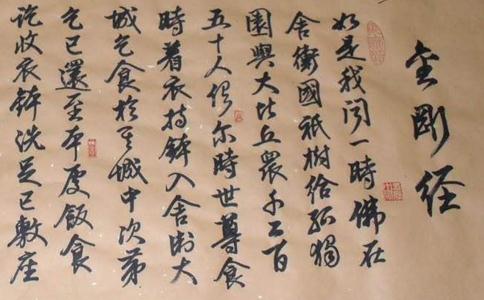 金剛经
如是我闻一時佛在
舍衛國祇樹给孤獨
園與大比丘眾千二百
五十人俱尔時世尊食
時着衣持鉢入舍衛大
城乞食於其城中次第
乞已還至本處飯食
讫收衣鉢洗足已敷座